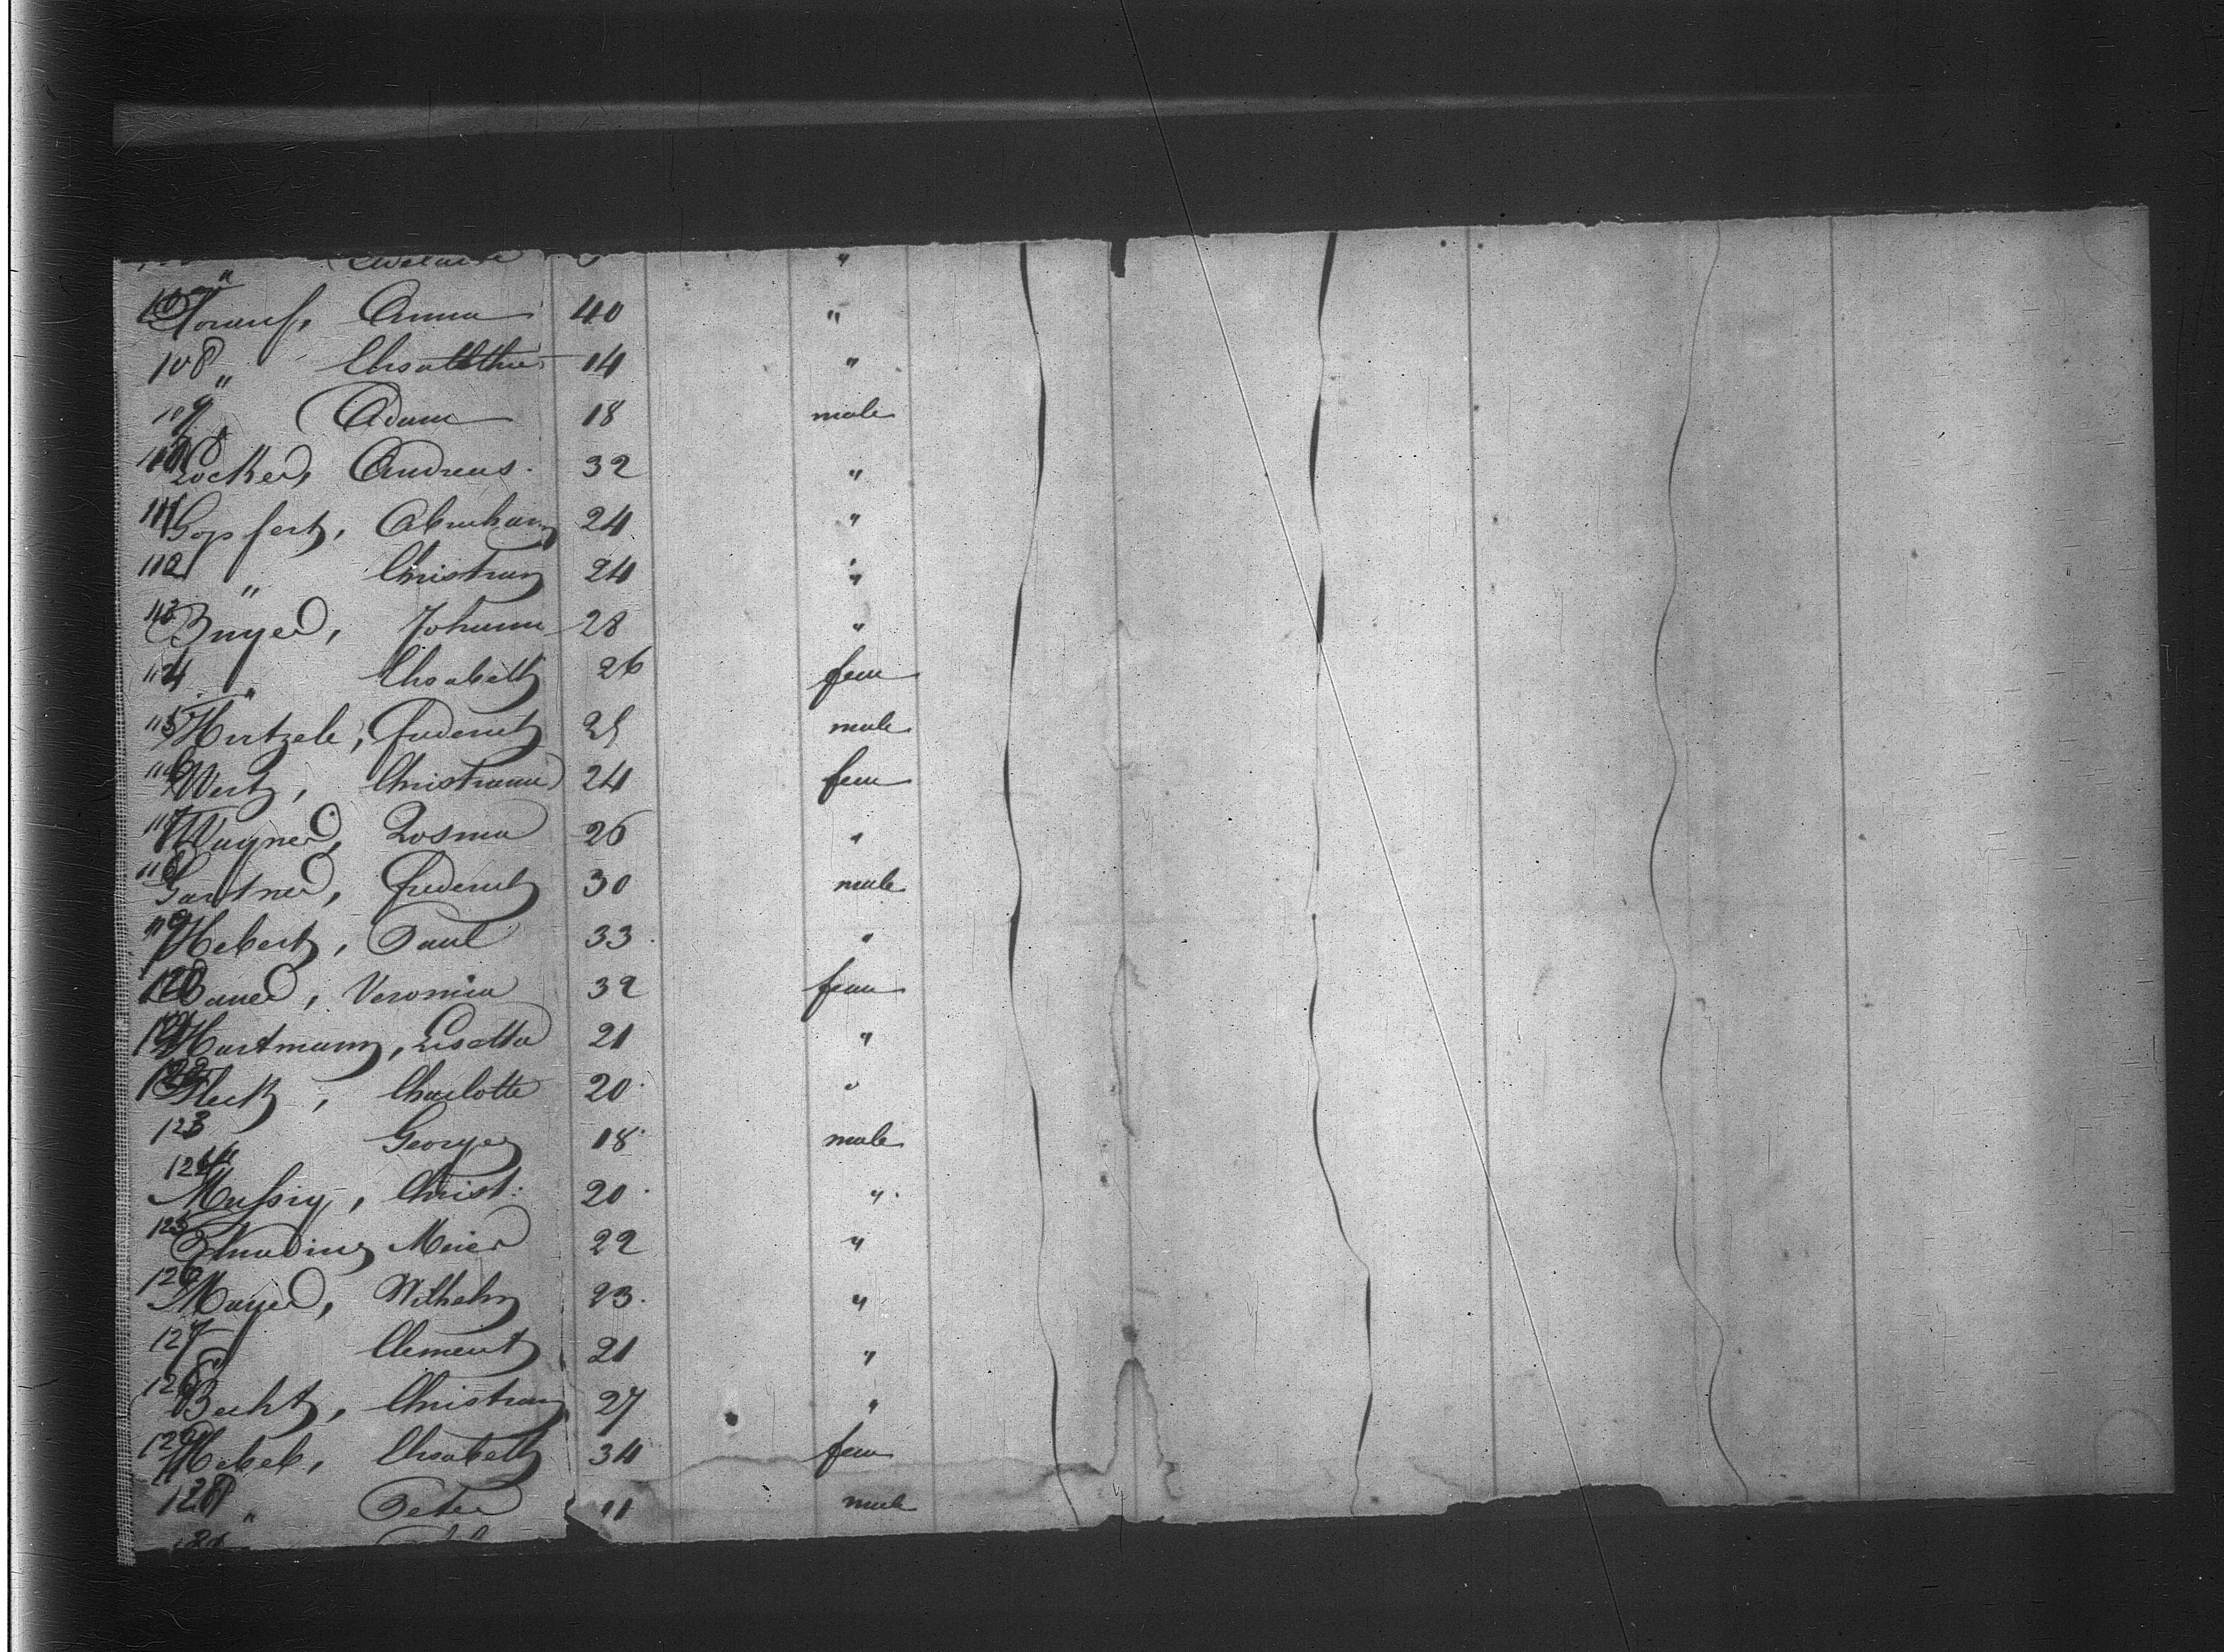 " Anna 40 "
108 " Elisabetha 14 "
109 " Adam 18 male
110 Locker, Andreas. 32 "
111 Gopfert, Abraham 24 "
112 " Christian 24 "
113 Buyer, Johann 28 "
114 " Elisabeth 26 fem
115 Hirtzele, Frederich 25 male
116 Wertz, Christiana 24 fem
117 Wagner, Rosina 26 "
118 Gartner, Frederich 30 male
119 Hebert, Paul 33 "
120 Bauer, Veronica 32 fem
121 Hartmann, Lisetta 21 "
122 Fleck, Charlotte 20 "
123 " George 18 male
124 Massig, Christ: 20 "
125 Meier 22 "
126 Mayer, Wilhelm 23 "
127 Clement 21 "
128 Becht, Christian 27 "
129 Hebele, Elisabeth 34 fem
128 " Peter 11 male